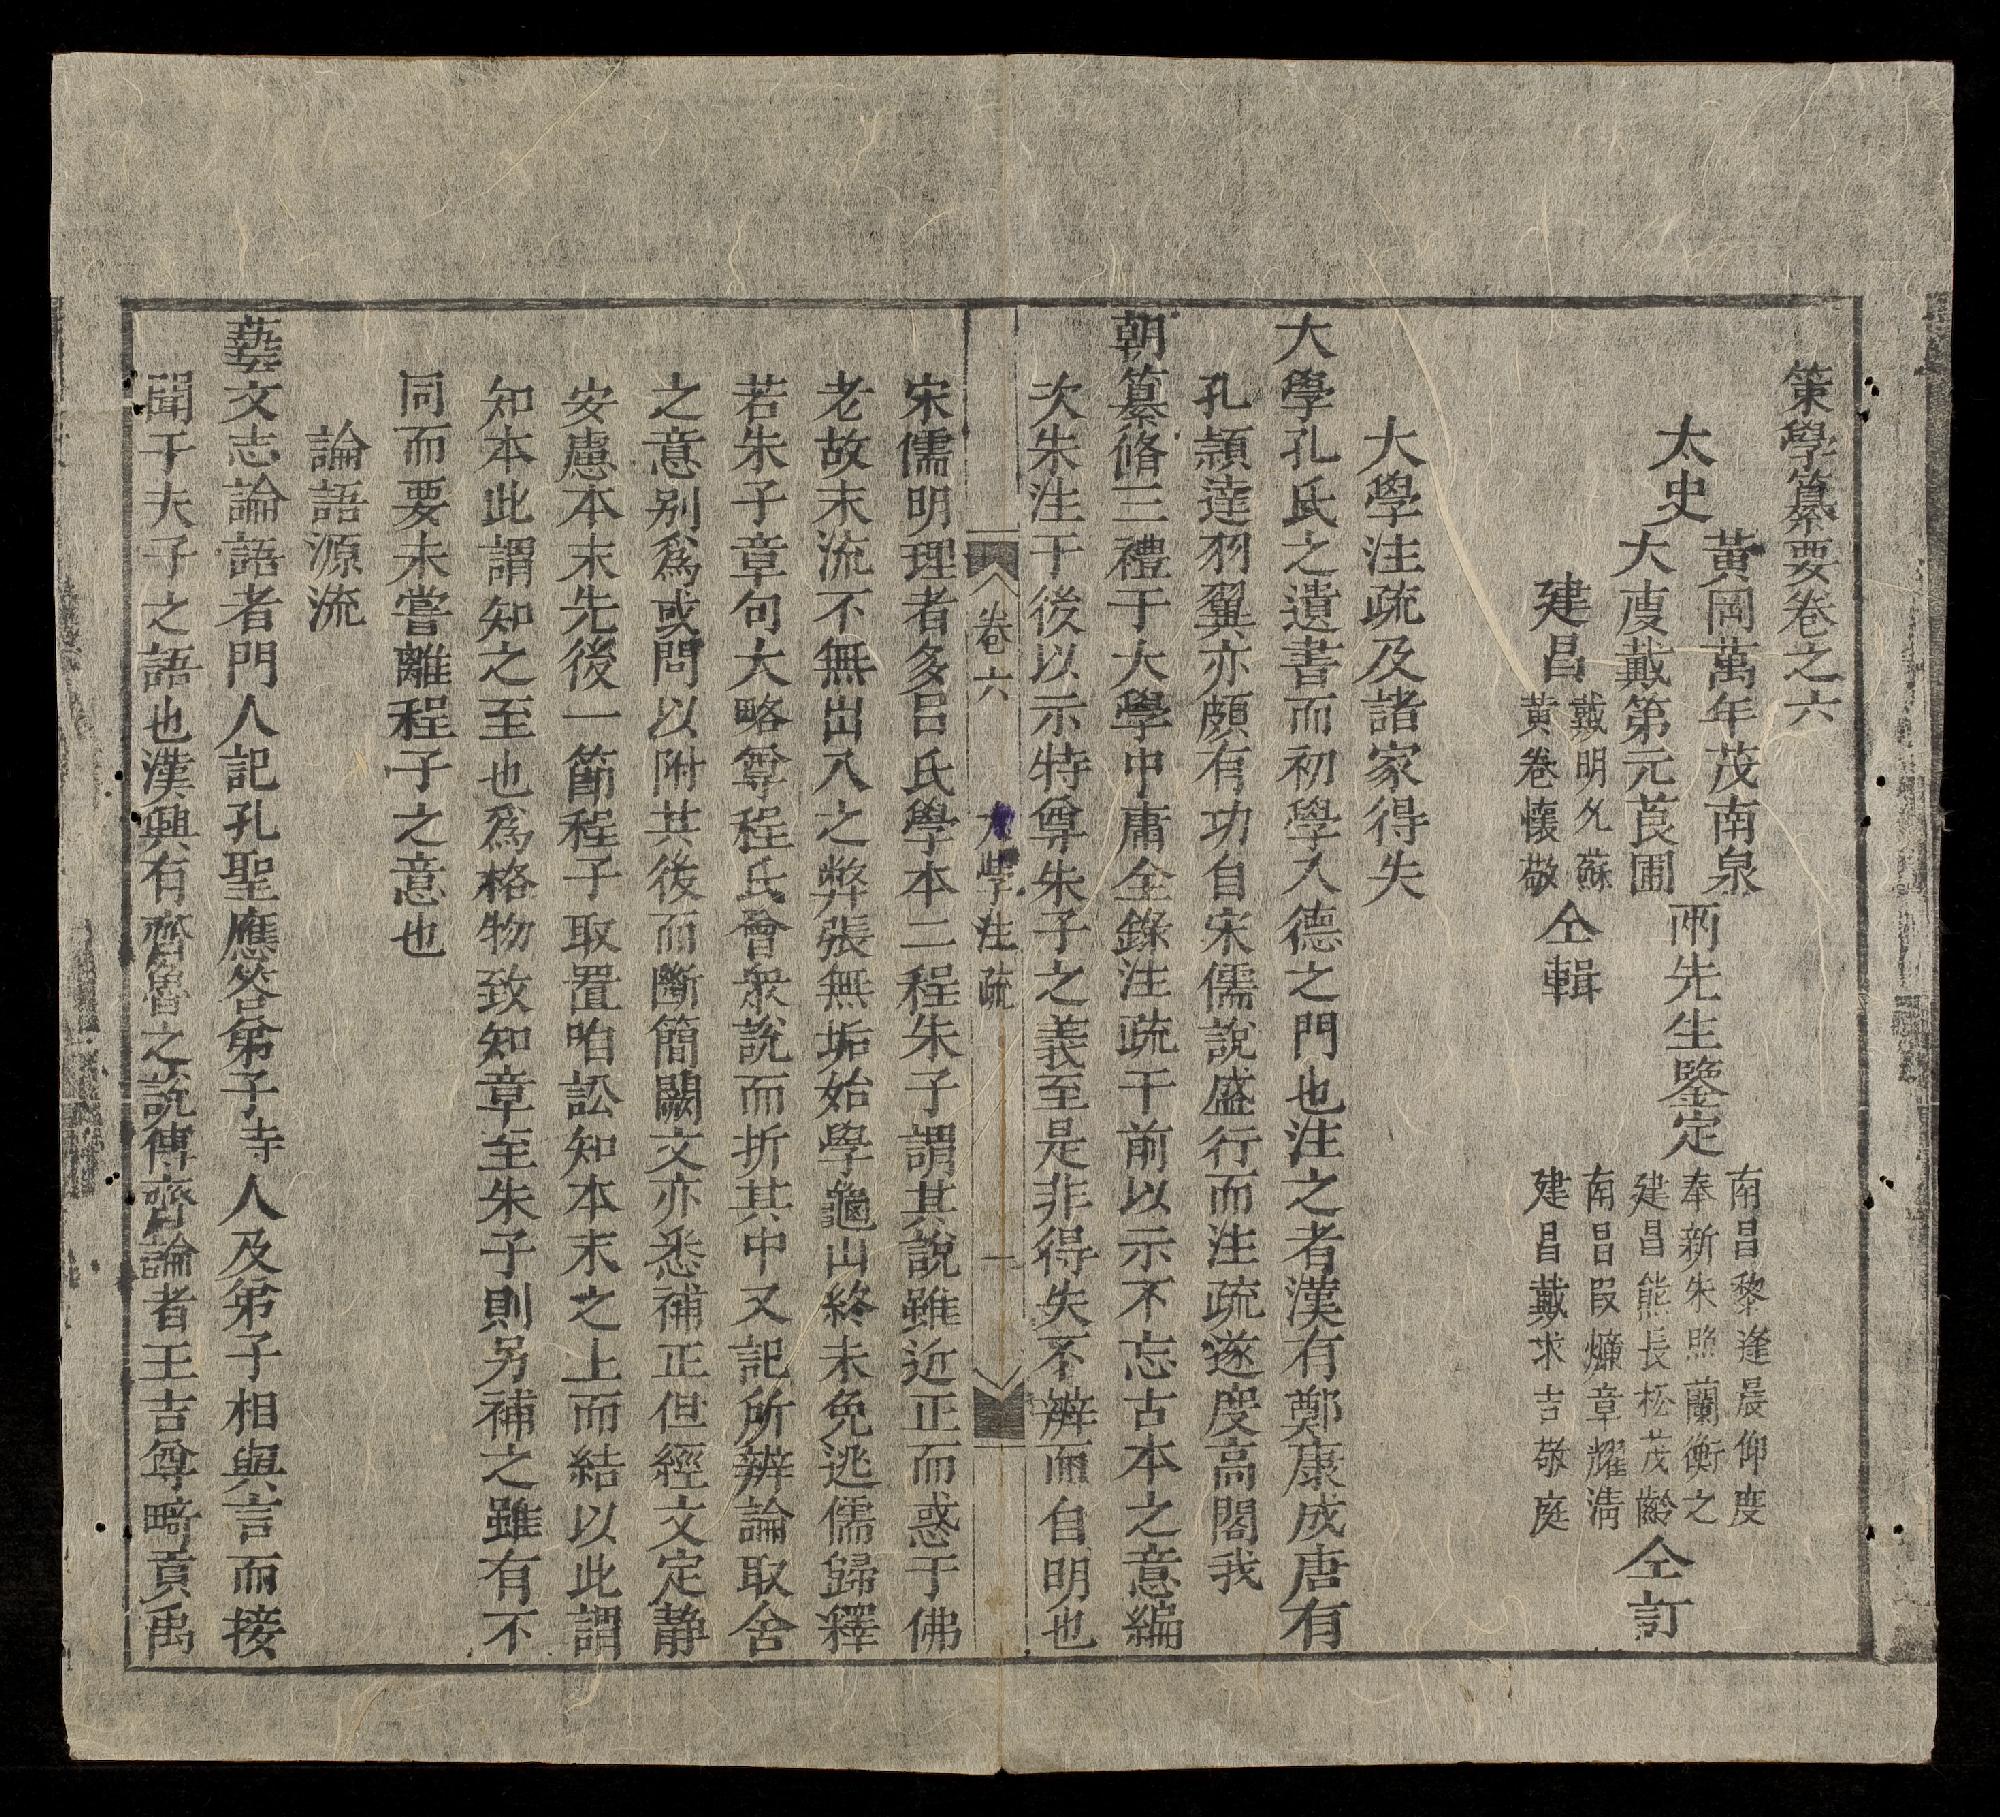 策學纂要卷之六
太史
黃岡萬年茂南泉
大庾戴第元莨圃
兩先生鑒定
建昌
戴明允蘇
黃卷懷敬
仝輯
南昌黎逢晨仰度
奉新朱照蘭衡之
建昌熊長松茂齡
南昌段爌章耀淸
建昌戴求吉敬庭
仝訂
大學注疏及諸家得失
大學孔氏之遺書而初學入德之門也注之者漢有鄭康成唐有
孔頴逹羽翼亦頗有功自宋儒說盛行而注疏遂庋高閣我
朝纂脩三禮于大學中庸全錄注疏于前以示不忘古本之意編
次朱注于後以示特尊朱子之義至是非得失不辨而自明也
卷六
大學注疏
一
宋儒明理者多吕氏學本二程朱子謂其說雖近正而惑于佛
老故末流不無出入之弊張無垢始學龜山終未免逃儒歸釋
若朱子章句大略尊程氏會衆說而折其中又記所辨論取舍
之意别爲或問以附其後而斷簡闕文亦悉補正但經文定静
安慮本末先後一節程子取置咱訟知本末之上而結以此謂
知本此謂知之至也爲格物致知章至朱子則另補之雖有不
同而要未嘗離程子之意也
論語源流
藝文志論語者門人記孔聖應答弟子寺人及弟子相與言而接
聞于夫子之語也漢興有齊魯之說傳齊論者王吉尊畸貢禹